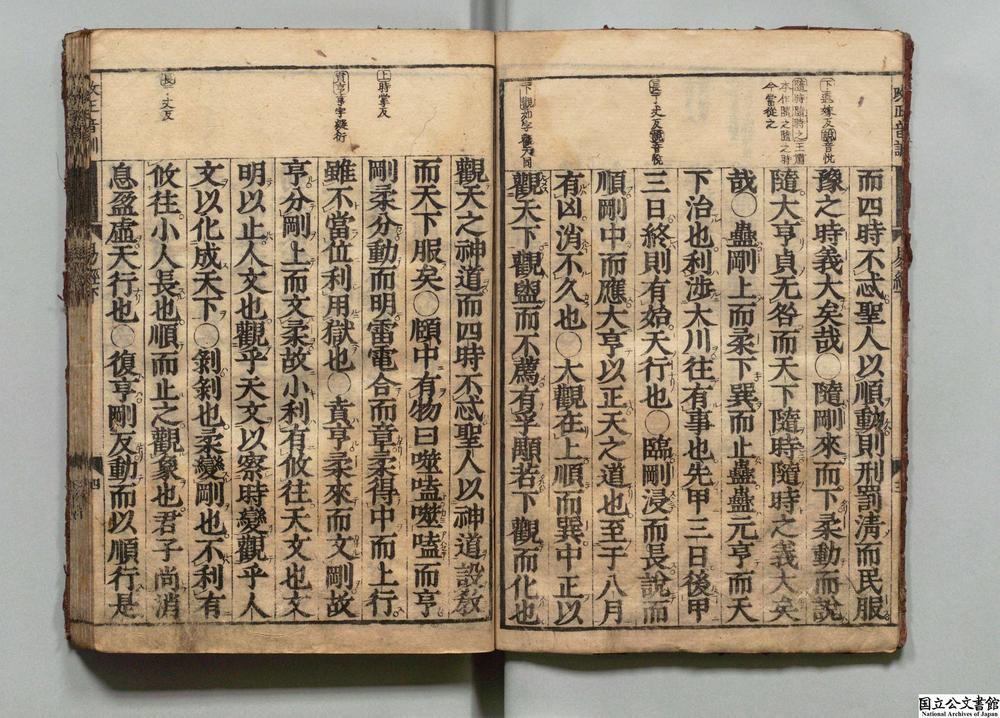 下遐嫁反說音悅
隨時隨時之王肅
本作隨之隨之時
今當從之
長丁丈反說音悅
下觀如字觀天同
而四時不忒聖人以順動則刑罰清而民服
豫之時義大矣哉○隨剛來而下柔動而說
隨大亨貞无咎而天下隨時隨時之義大矣
哉○蠱剛上而柔下巽而止蠱蠱元亨而天
下治也利涉大川往有事也先甲三日後甲
三日終則有始天行也○臨剛浸而長說而
順剛中而應大亨以正天之道也至于八月
有凶消不久也○大觀在上順而巽中正以
觀天下觀盥而不薦有孚顒若下觀而化也
上時掌反
賁亨亨字疑衍
長丁丈反
觀天之神道而四時不忒聖人以神道設敎
而天下服矣○頤中有物曰噬嗑噬嗑而亨
剛柔分動而明雷電合而章柔得中而上行
雖不當位利用獄也○賁亨柔來而文剛故
亨分剛上而文柔故小利有攸往天文也文
明以止人文也觀乎天文以察時變觀乎人
文以化成天下○剝剝也柔變剛也不利有
攸往小人長也順而止之觀象也君子尚消
息盈虛天行也○復亨剛反動而以順行是
易經
四
国立公文書館
National Archives of Japan